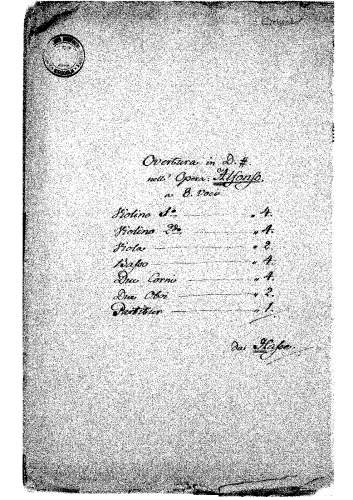 Overtura in D.#
nell' Opera: Alfonso.
a 8. Voci
Violino 1mo " 4.
Violino 2do " 4.
Viola " 2.
Basso " 4.
Due Corni " 4.
Due Oboi " 2.
Partitur " 1.
da Hasse.